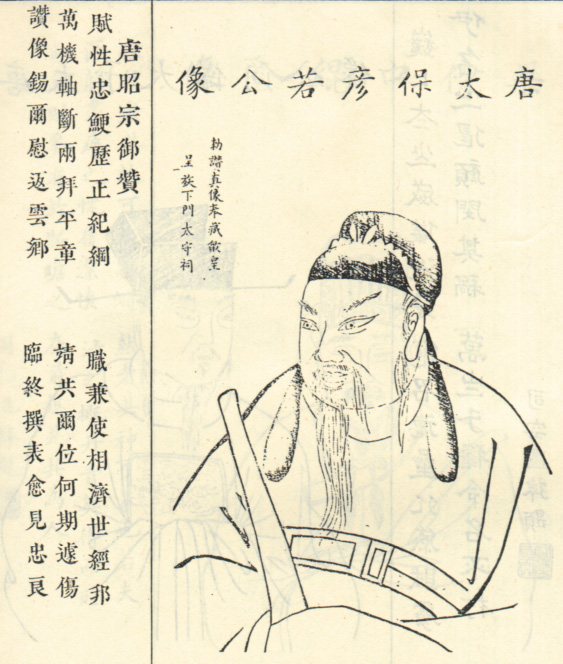 唐太保彥若公像
勑讚真像本藏歙皇
呈下門太守祠
唐昭宗御贊
賦性忠鯁歷正紀綱 職兼使相濟世經邦
萬機軸斷兩拜平章 靖共爾位何期遽傷
讚像錫爾慰返雲鄉 臨終撰表愈見忠良